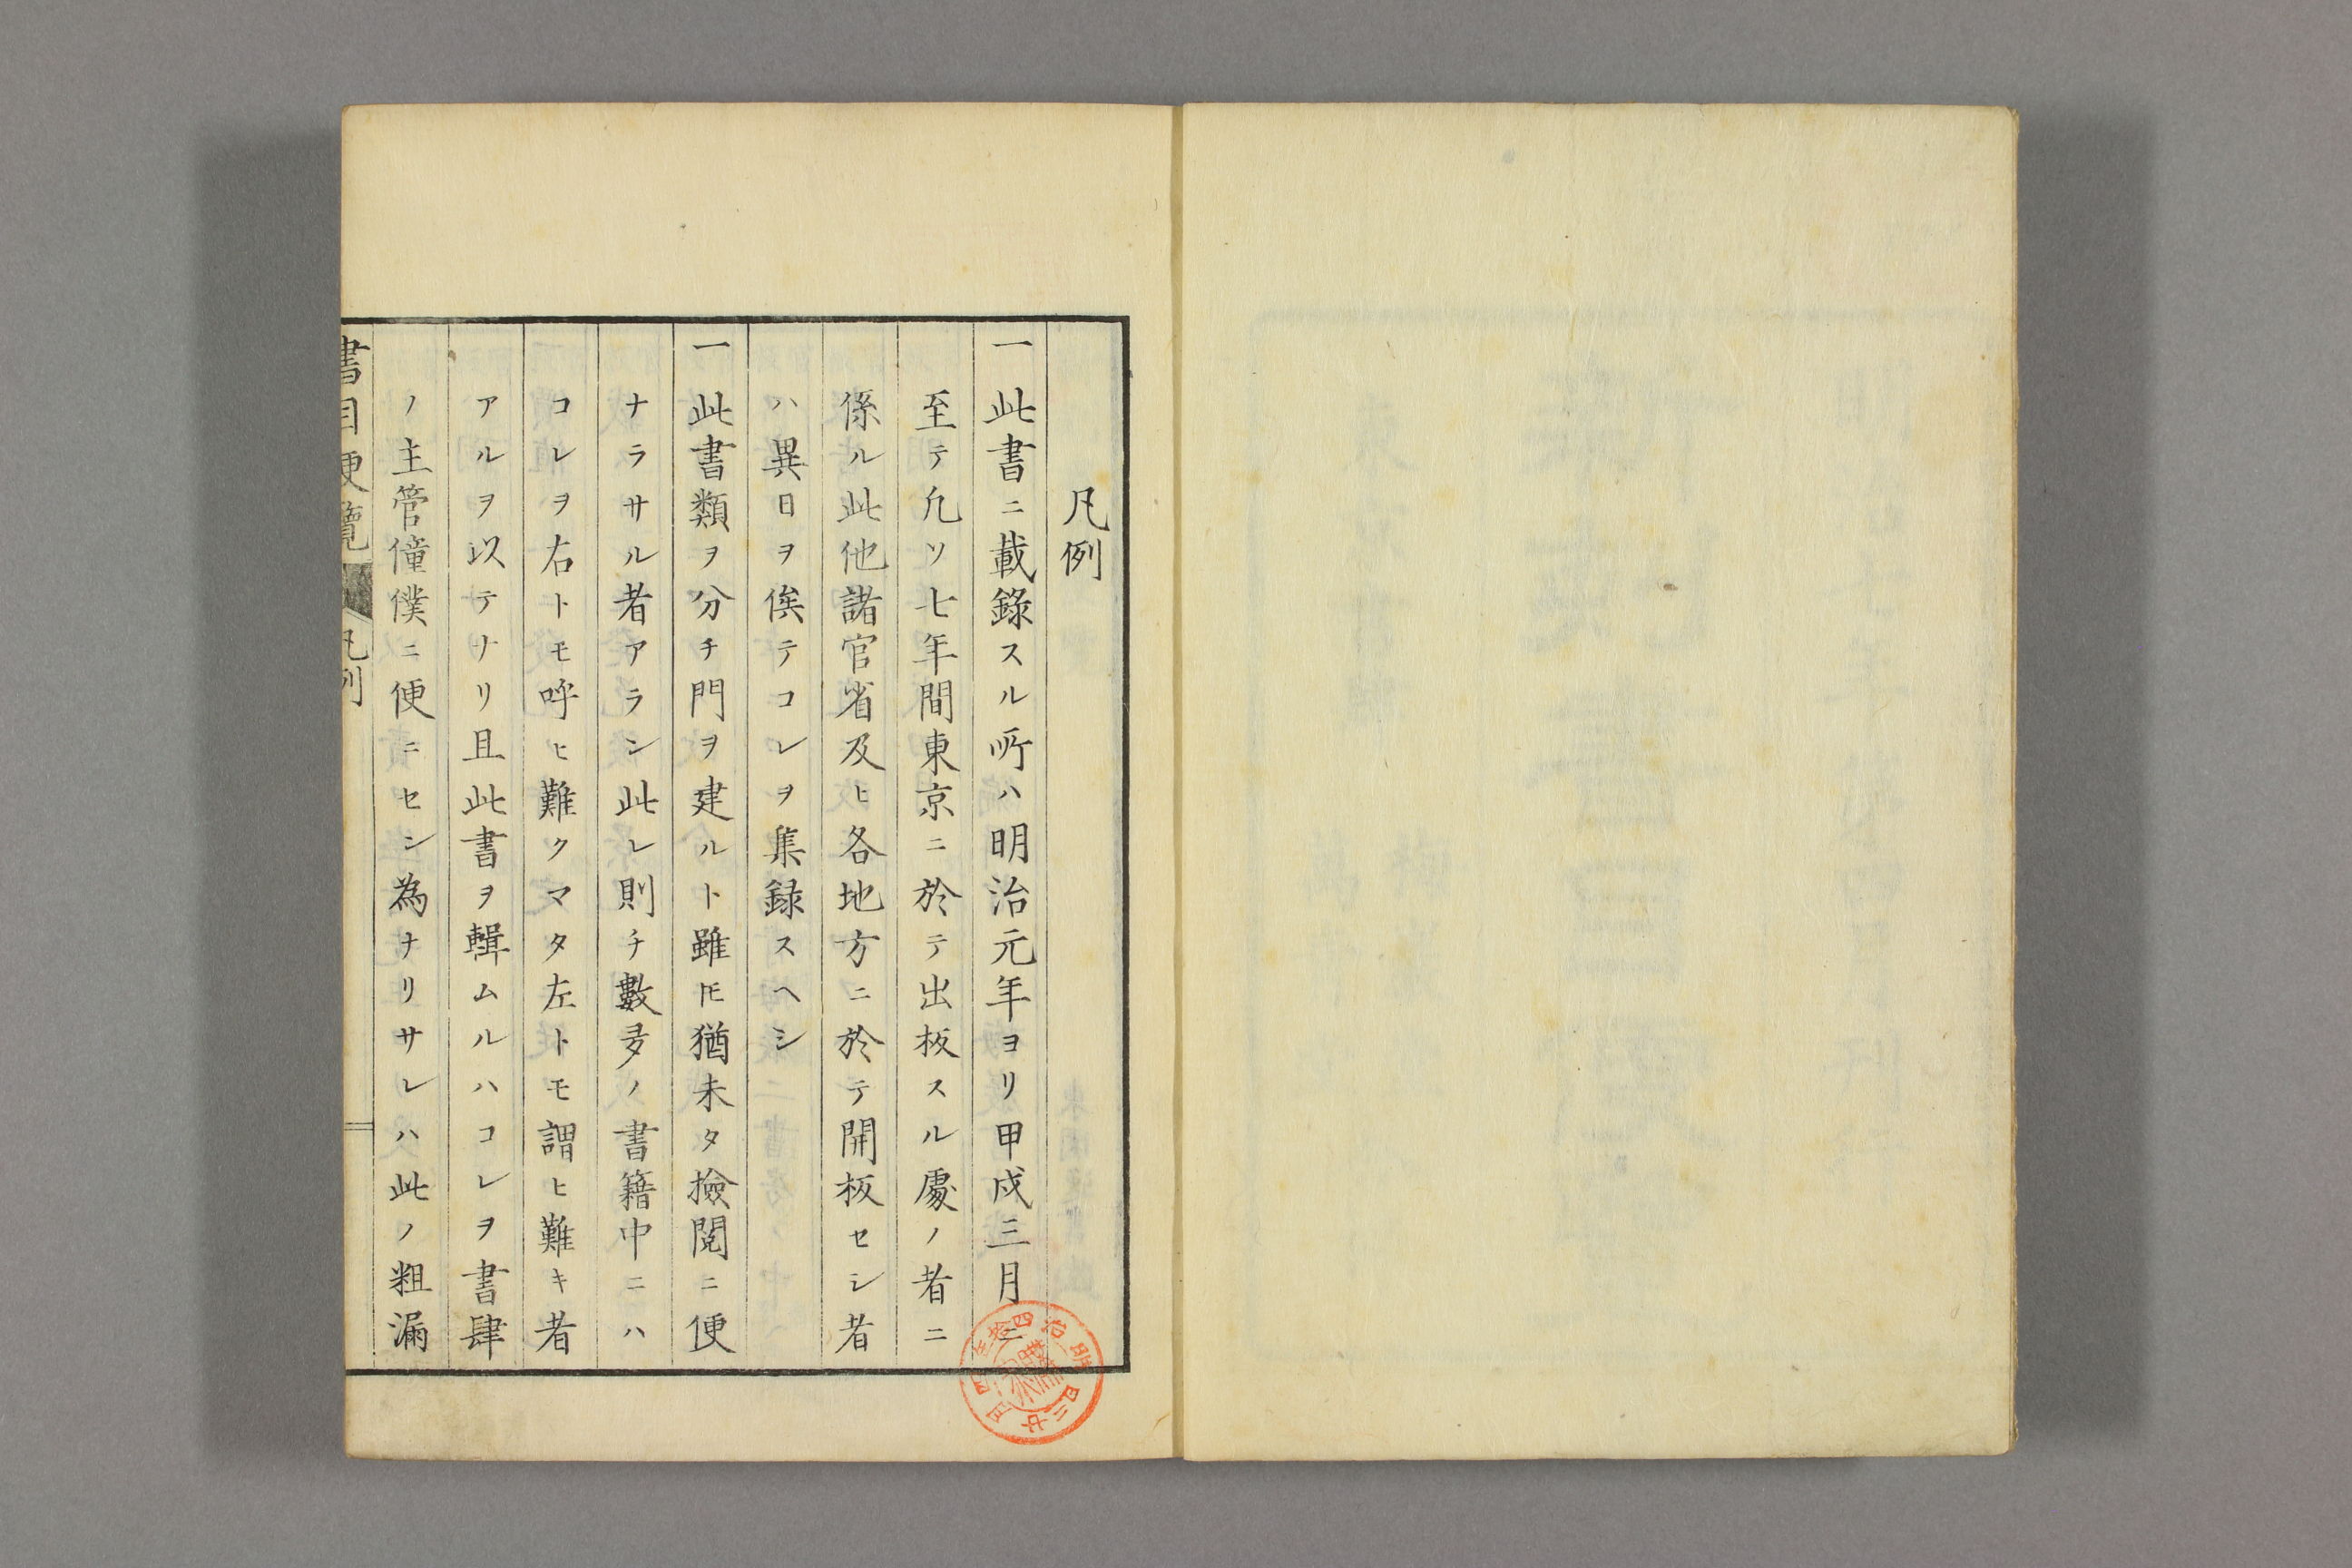 凡例
一此書ニ載錄スル所ハ明治元年ヨリ甲戌三月ニ
至テ凢ソ七年間東京ニ於テ出板スル處ノ者ニ
係ル此他諸官省及ヒ各地方ニ於テ開板セシ者
ハ異日ヲ俟テコレヲ集録スヘシ
一此書類ヲ分チ門ヲ建ルト雖𪜈猶未タ撿閲ニ便
ナラサル者アラン此レ則チ數多ノ書籍中ニハ
コレヲ右トモ呼ヒ難クマタ左トモ謂ヒ難キ者
アルヲ以テナリ且此書ヲ輯ムルハコレヲ書肆
ノ主管僮僕ニ便ニセン為ナリサレハ此ノ粗漏
書目便覽
凡例